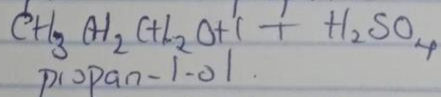 CH₃ CH₂ CH₂ OH + H₂SO₄
propan-1-ol.